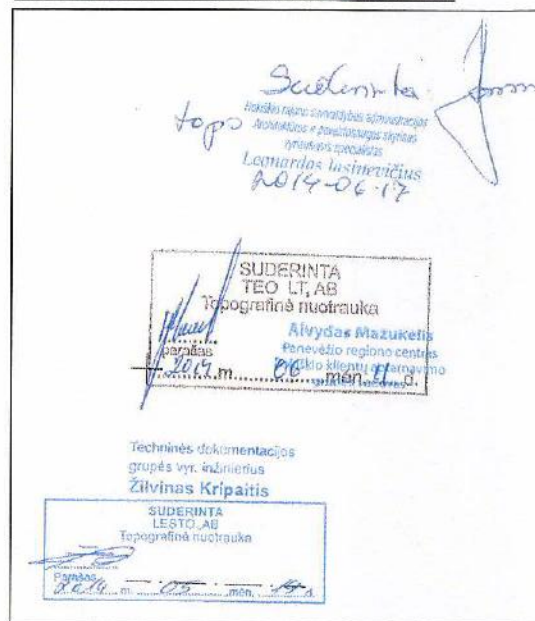 Suderinta
topo
Rokiškio rajono savivaldybės administracijos
Architektūros ir paveldosaugos skyriaus
vyriausiasis specialistas
Leonardas Jasinevičius
2014-06-17
SUDERINTA
TEO LT, AB
Topografinė nuotrauka
Alvydas Mazukelis
parašas
Panevėžio regiono centras
klientų aptarnavimo
2014 m. 06 mėn. 11 d.
Techninės dokumentacijos
grupės vyr. inžinierius
Žilvinas Kripaitis
SUDERINTA
LESTO, AB
Topografinė nuotrauka
Parašas
2014 m. 05 mėn. d.